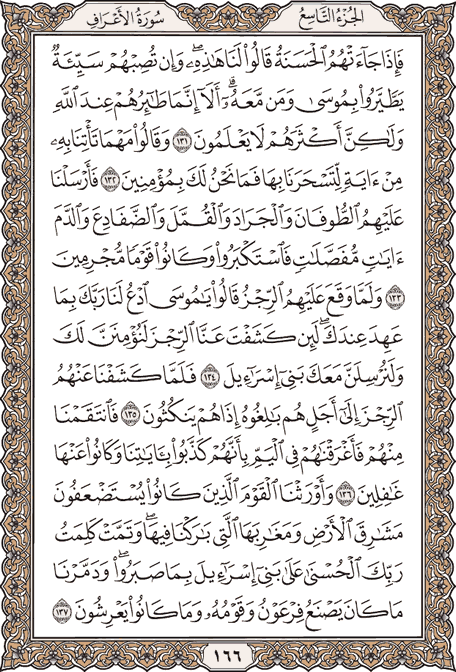 الجزء التاسع
سورة الأعراف
فَإِذَا جَآءَتْهُمُ ٱلْحَسَنَةُ قَالُوا۟ لَنَا هَـٰذِهِۦ ۖ وَإِن تُصِبْهُمْ سَيِّئَةٌ
يَطَّيَّرُوا۟ بِمُوسَىٰ وَمَن مَّعَهُۥٓ ۗ أَلَآ إِنَّمَا طَـٰٓئِرُهُمْ عِندَ ٱللَّهِ
وَلَـٰكِنَّ أَكْثَرَهُمْ لَا يَعْلَمُونَ ١٣١ وَقَالُوا۟ مَهْمَا تَأْتِنَا بِهِۦ
مِنْ ءَايَةٍ لِّتَسْحَرَنَا بِهَا فَمَا نَحْنُ لَكَ بِمُؤْمِنِينَ ١٣٢ فَأَرْسَلْنَا
عَلَيْهِمُ ٱلطُّوفَانَ وَٱلْجَرَادَ وَٱلْقُمَّلَ وَٱلضَّفَادِعَ وَٱلدَّمَ
ءَايَـٰتٍ مُّفَصَّلَـٰتٍ فَٱسْتَكْبَرُوا۟ وَكَانُوا۟ قَوْمًا مُّجْرِمِينَ
١٣٣ وَلَمَّا وَقَعَ عَلَيْهِمُ ٱلرِّجْزُ قَالُوا۟ يَـٰمُوسَى ٱدْعُ لَنَا رَبَّكَ بِمَا
عَهِدَ عِندَكَ ۖ لَئِن كَشَفْتَ عَنَّا ٱلرِّجْزَ لَنُؤْمِنَنَّ لَكَ
وَلَنُرْسِلَنَّ مَعَكَ بَنِىٓ إِسْرَٰٓءِيلَ ١٣٤ فَلَمَّا كَشَفْنَا عَنْهُمُ
ٱلرِّجْزَ إِلَىٰٓ أَجَلٍ هُم بَـٰلِغُوهُ إِذَا هُمْ يَنكُثُونَ ١٣٥ فَٱنتَقَمْنَا
مِنْهُمْ فَأَغْرَقْنَـٰهُمْ فِى ٱلْيَمِّ بِأَنَّهُمْ كَذَّبُوا۟ بِـَٔايَـٰتِنَا وَكَانُوا۟ عَنْهَا
غَـٰفِلِينَ ١٣٦ وَأَوْرَثْنَا ٱلْقَوْمَ ٱلَّذِينَ كَانُوا۟ يُسْتَضْعَفُونَ
مَشَـٰرِقَ ٱلْأَرْضِ وَمَغَـٰرِبَهَا ٱلَّتِى بَـٰرَكْنَا فِيهَا ۖ وَتَمَّتْ كَلِمَتُ
رَبِّكَ ٱلْحُسْنَىٰ عَلَىٰ بَنِىٓ إِسْرَٰٓءِيلَ بِمَا صَبَرُوا۟ ۖ وَدَمَّرْنَا
مَا كَانَ يَصْنَعُ فِرْعَوْنُ وَقَوْمُهُۥ وَمَا كَانُوا۟ يَعْرِشُونَ ١٣٧
١٦٦